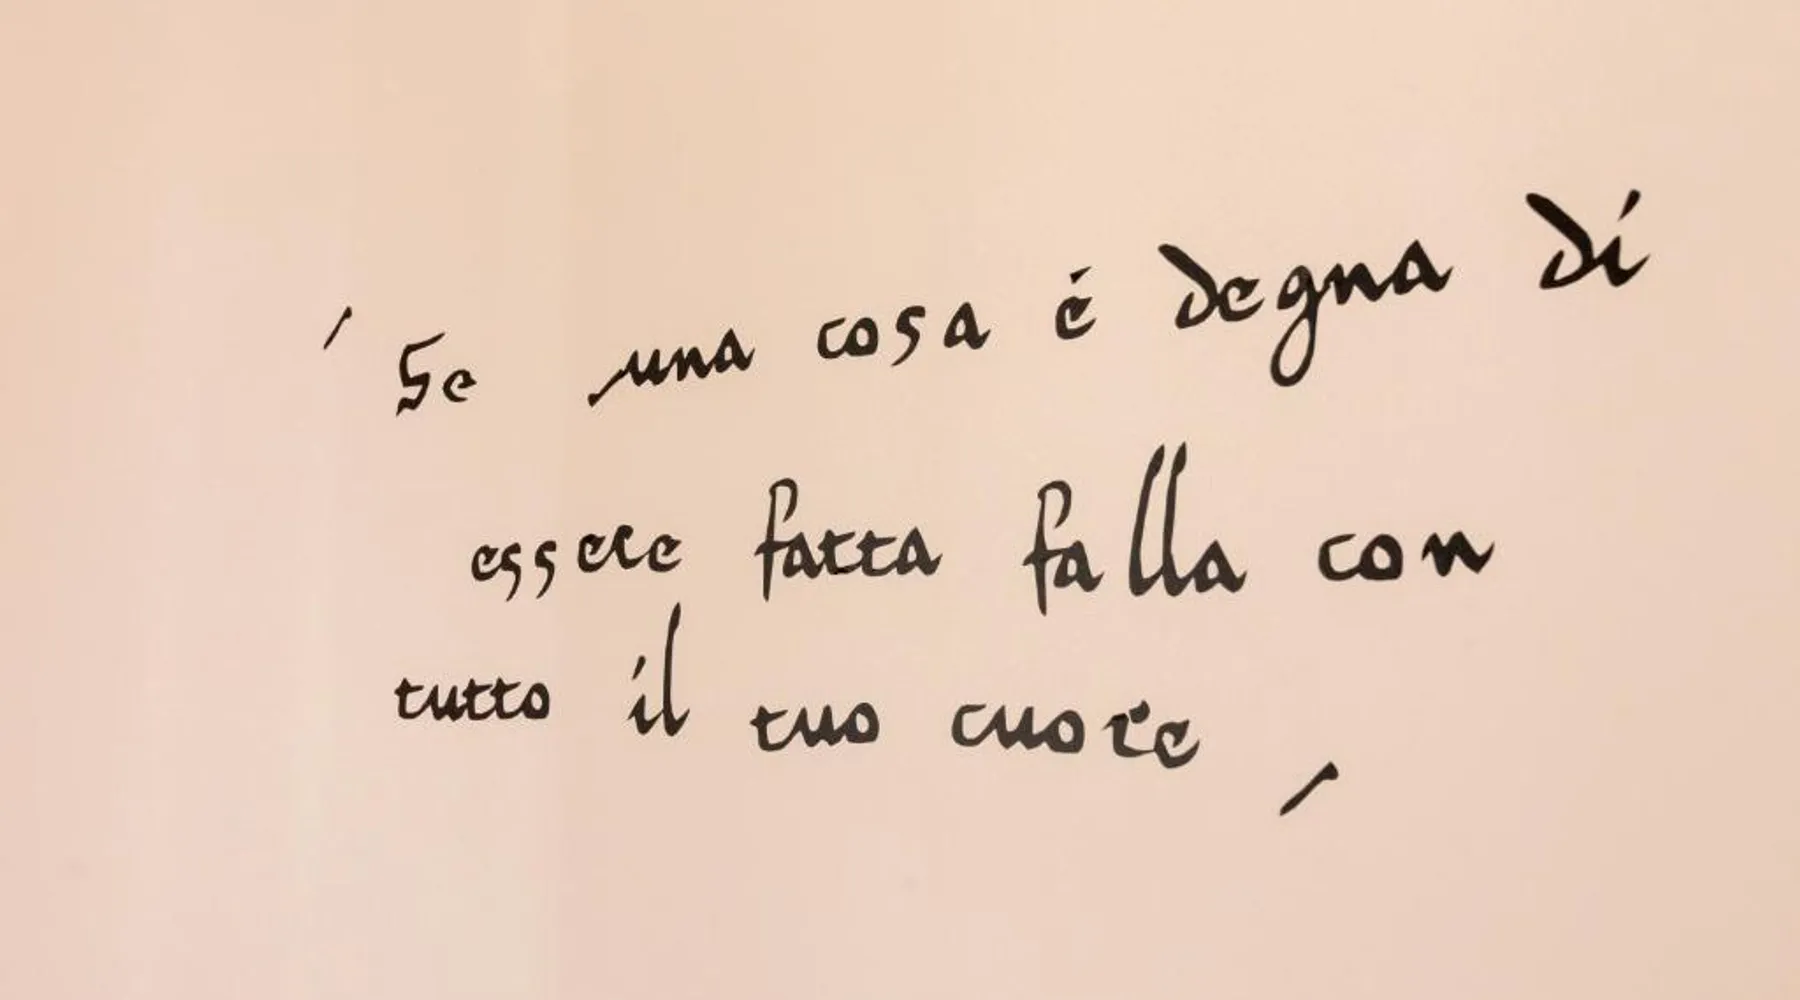 'Se una cosa é degna di
essere fatta falla con
tutto il tuo cuore,